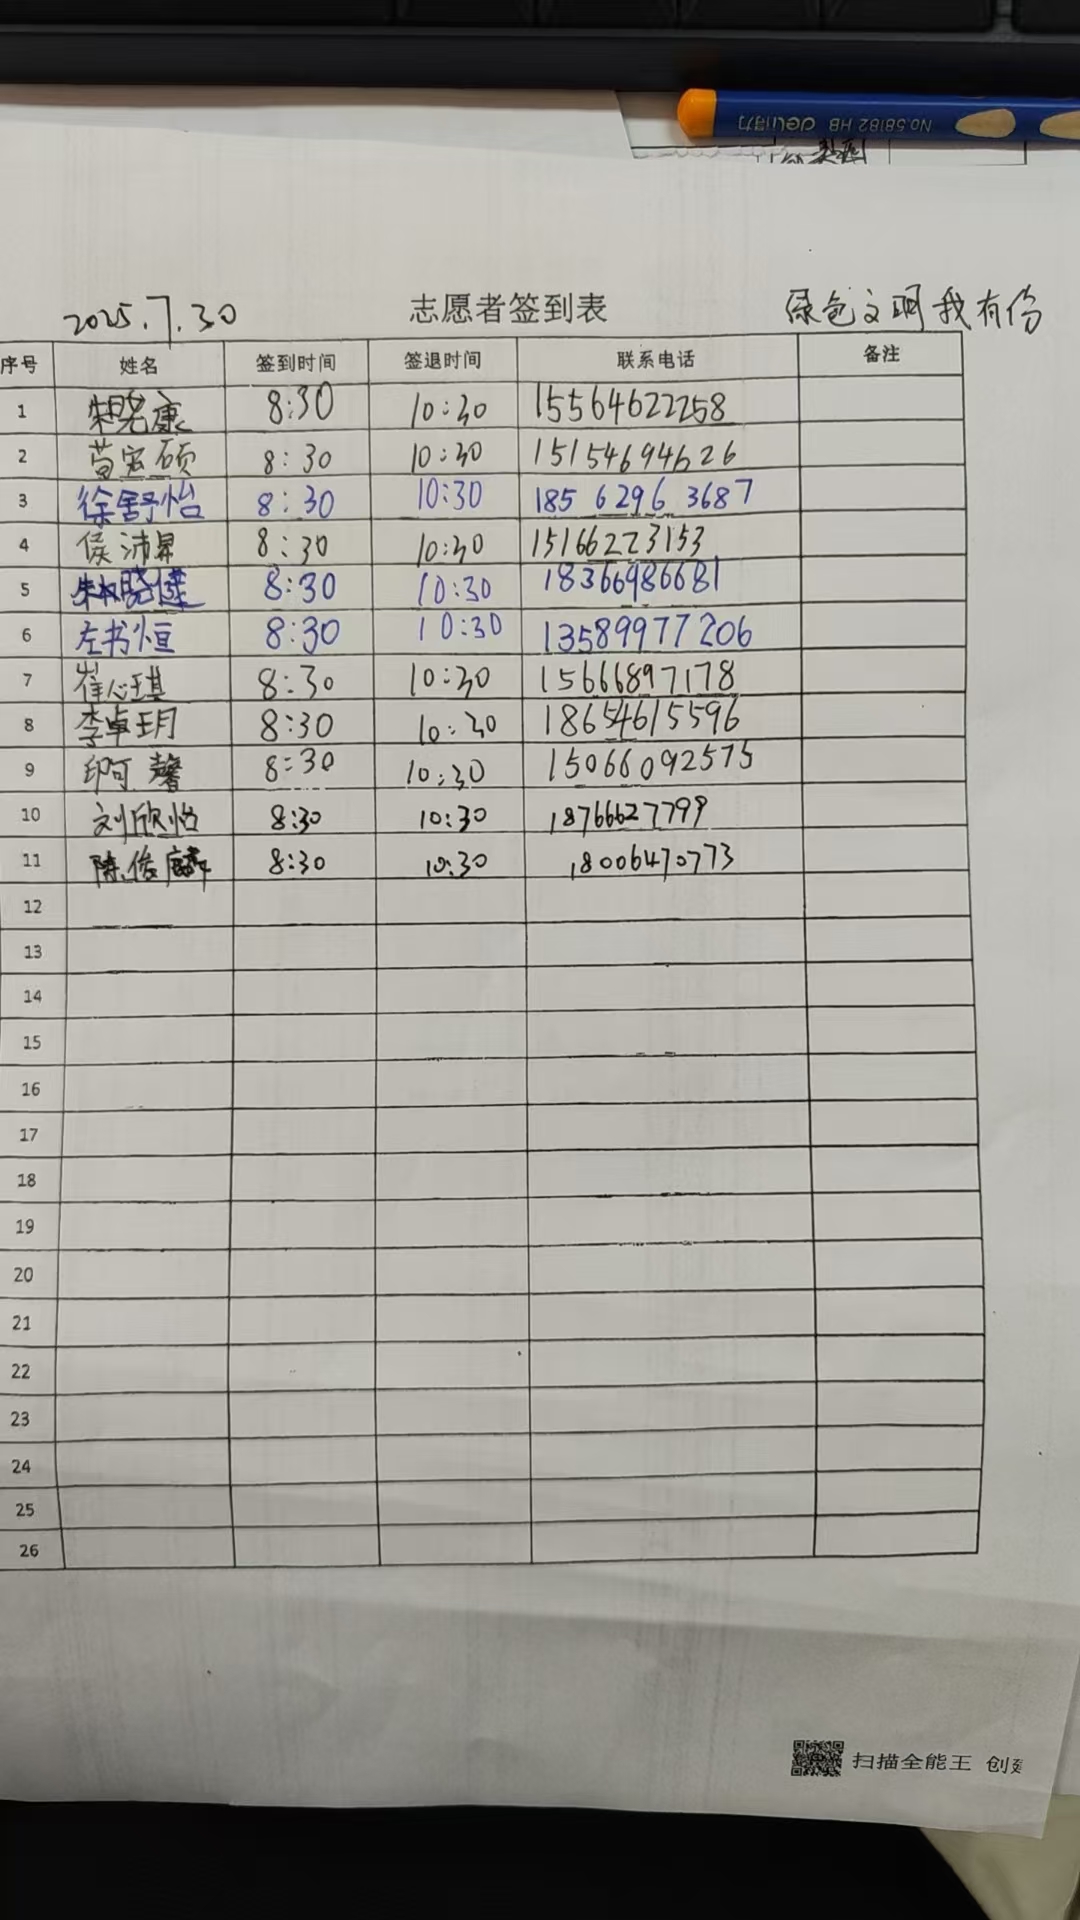 No.58182 HB deli得力
2025.7.30 志愿者签到表 绿色文明我有份
序号 姓名 签到时间 签退时间 联系电话 备注
1 朱晓康 8:30 10:30 15564622258
2 苟宏硕 8:30 10:30 15154694626
3 徐舒怡 8:30 10:30 185 6296 3687
4 侯沛昇 8:30 10:30 15166223153
5 朱晓健 8:30 10:30 18366986681
6 左书恒 8:30 10:30 13589977206
7 崔心琪 8:30 10:30 15666897178
8 李卓玥 8:30 10:30 18654615596
9 8:30 10:30 15066092575
10 刘欣怡 8:30 10:30 18766627799
11 陈俊麟 8:30 10:30 18006470773
12
13
14
15
16
17
18
19
20
21
22
23
24
25
26
扫描全能王 创建